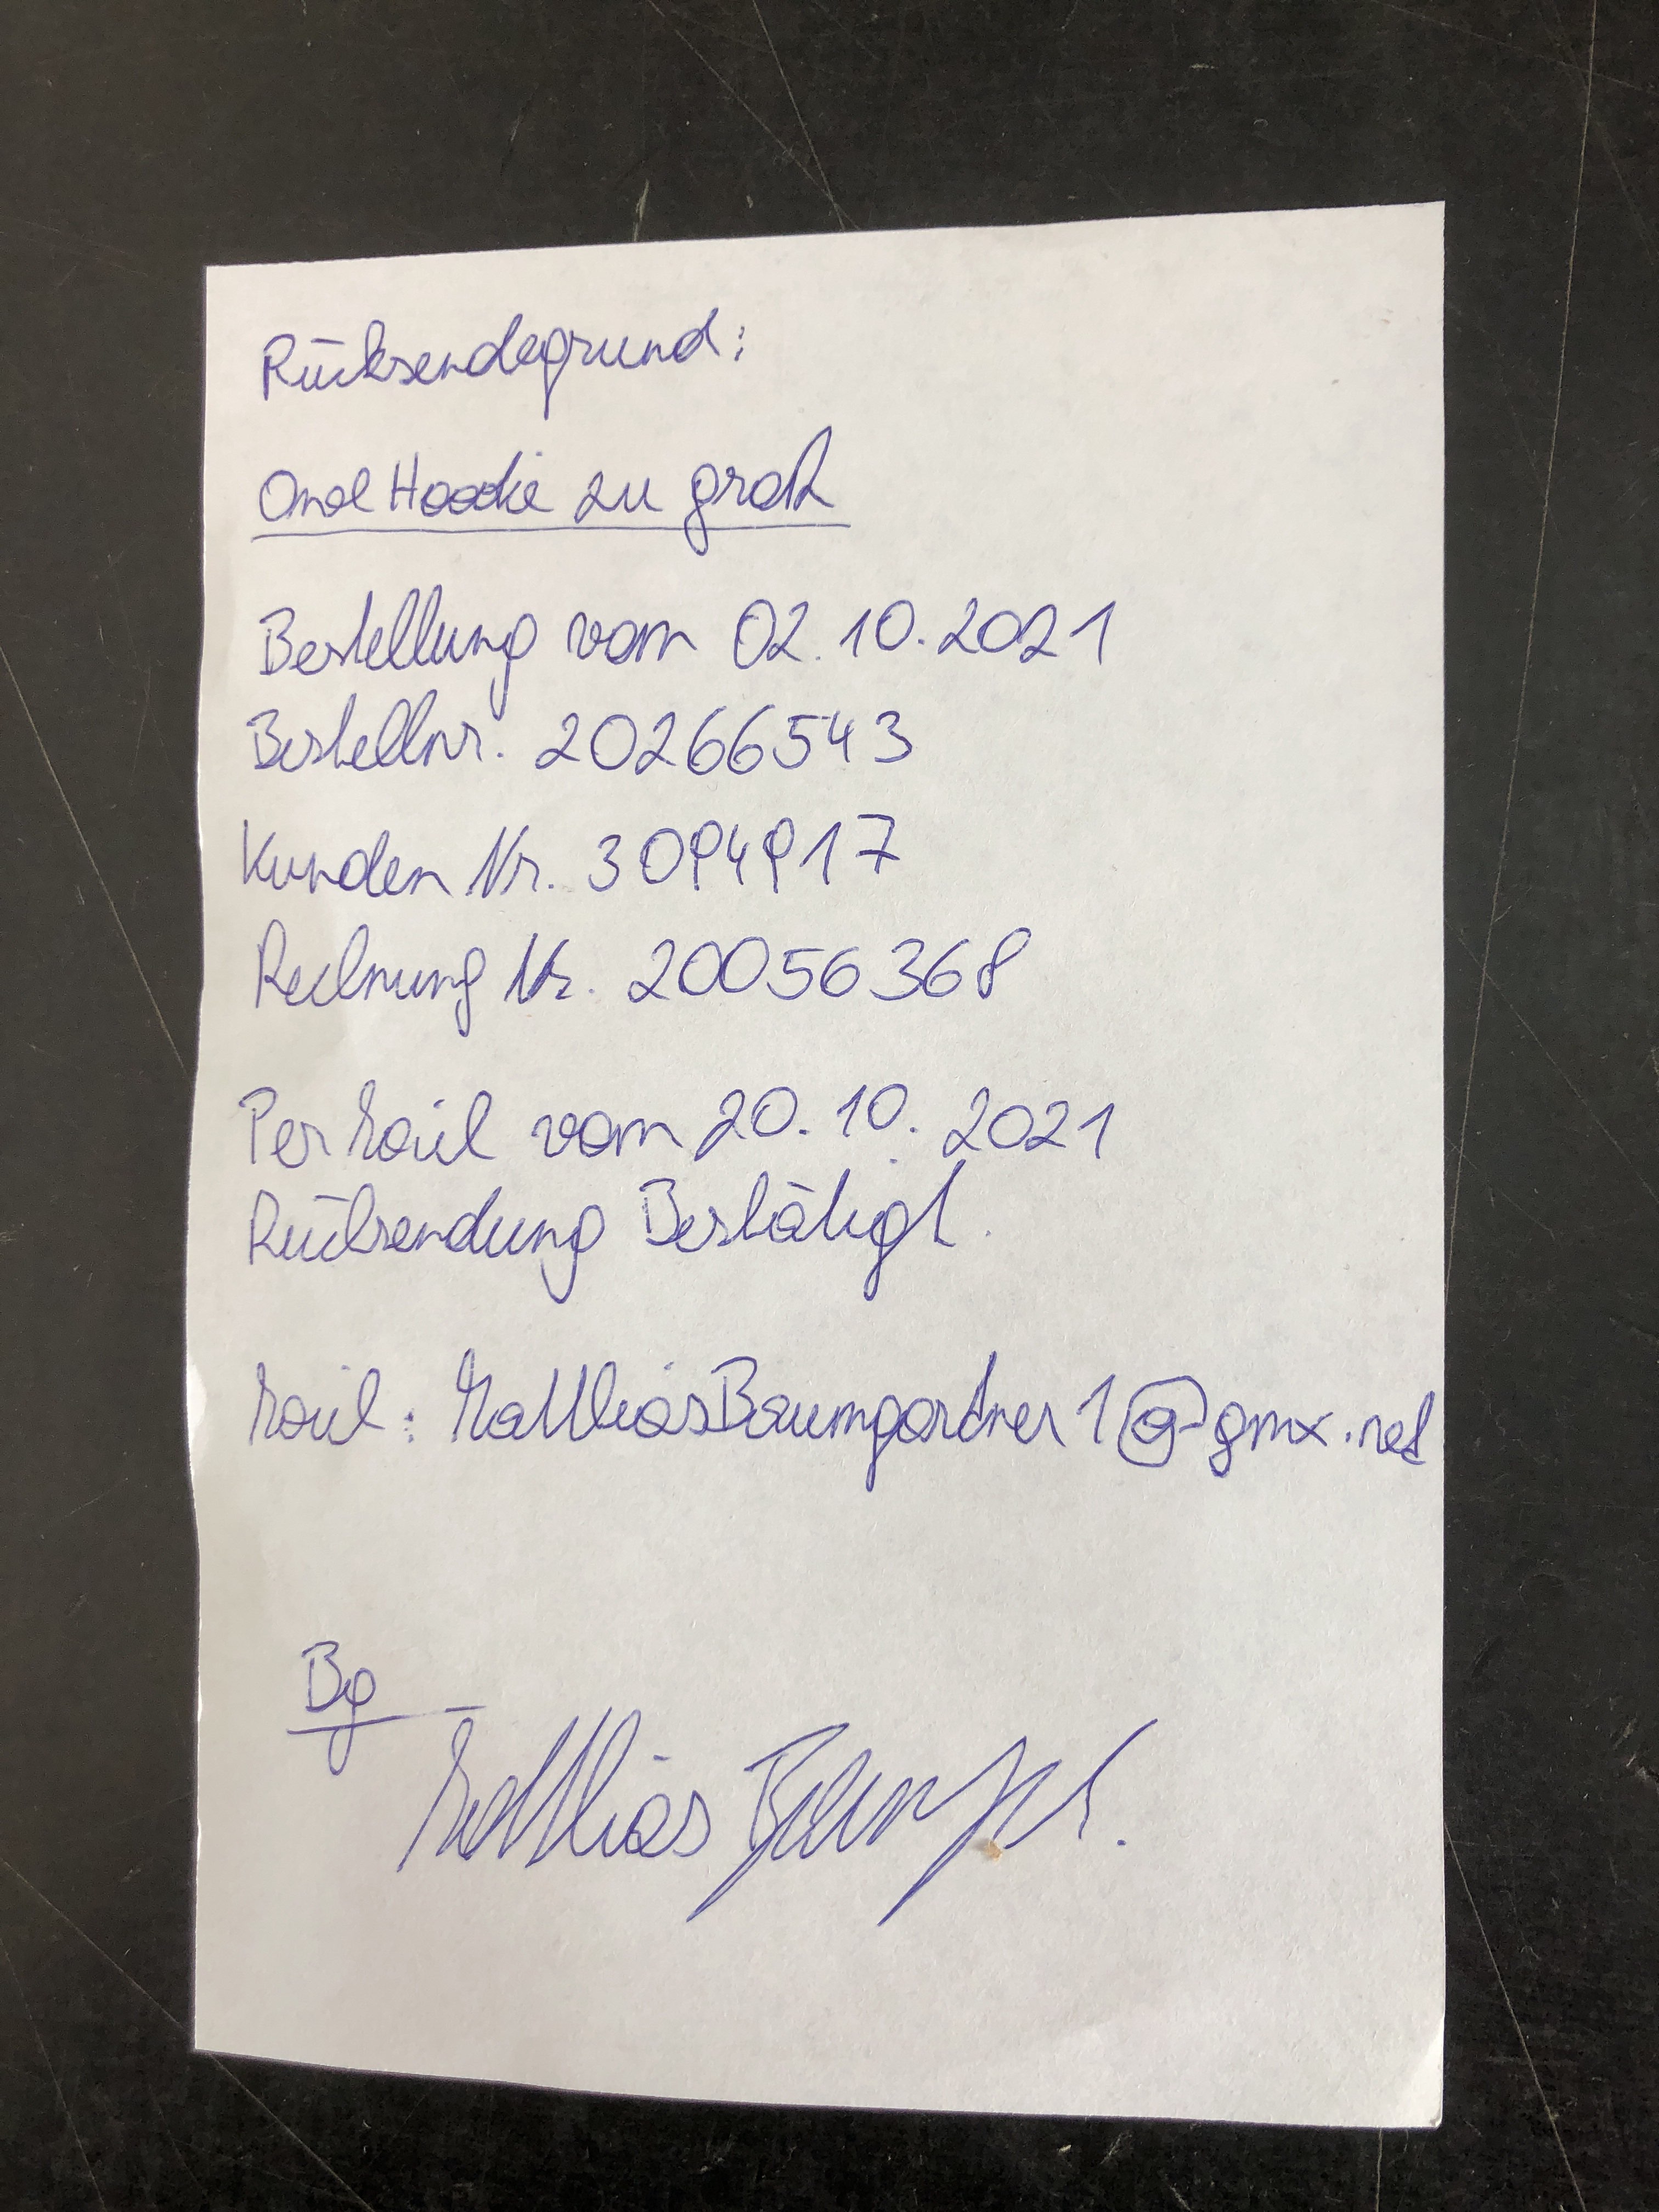 Rücksendegrund:
Hoodie zu groß
Bestellung vom 02.10.2021
Bestellnr. 20266543
Kunden Nr. 3094917
Rechnung Nr. 20056368
Per Mail vom 20.10.2021
Rücksendung Bestätigt.
Mail: MatthiasBaumgardner1@gmx.net
Bg
Matthias